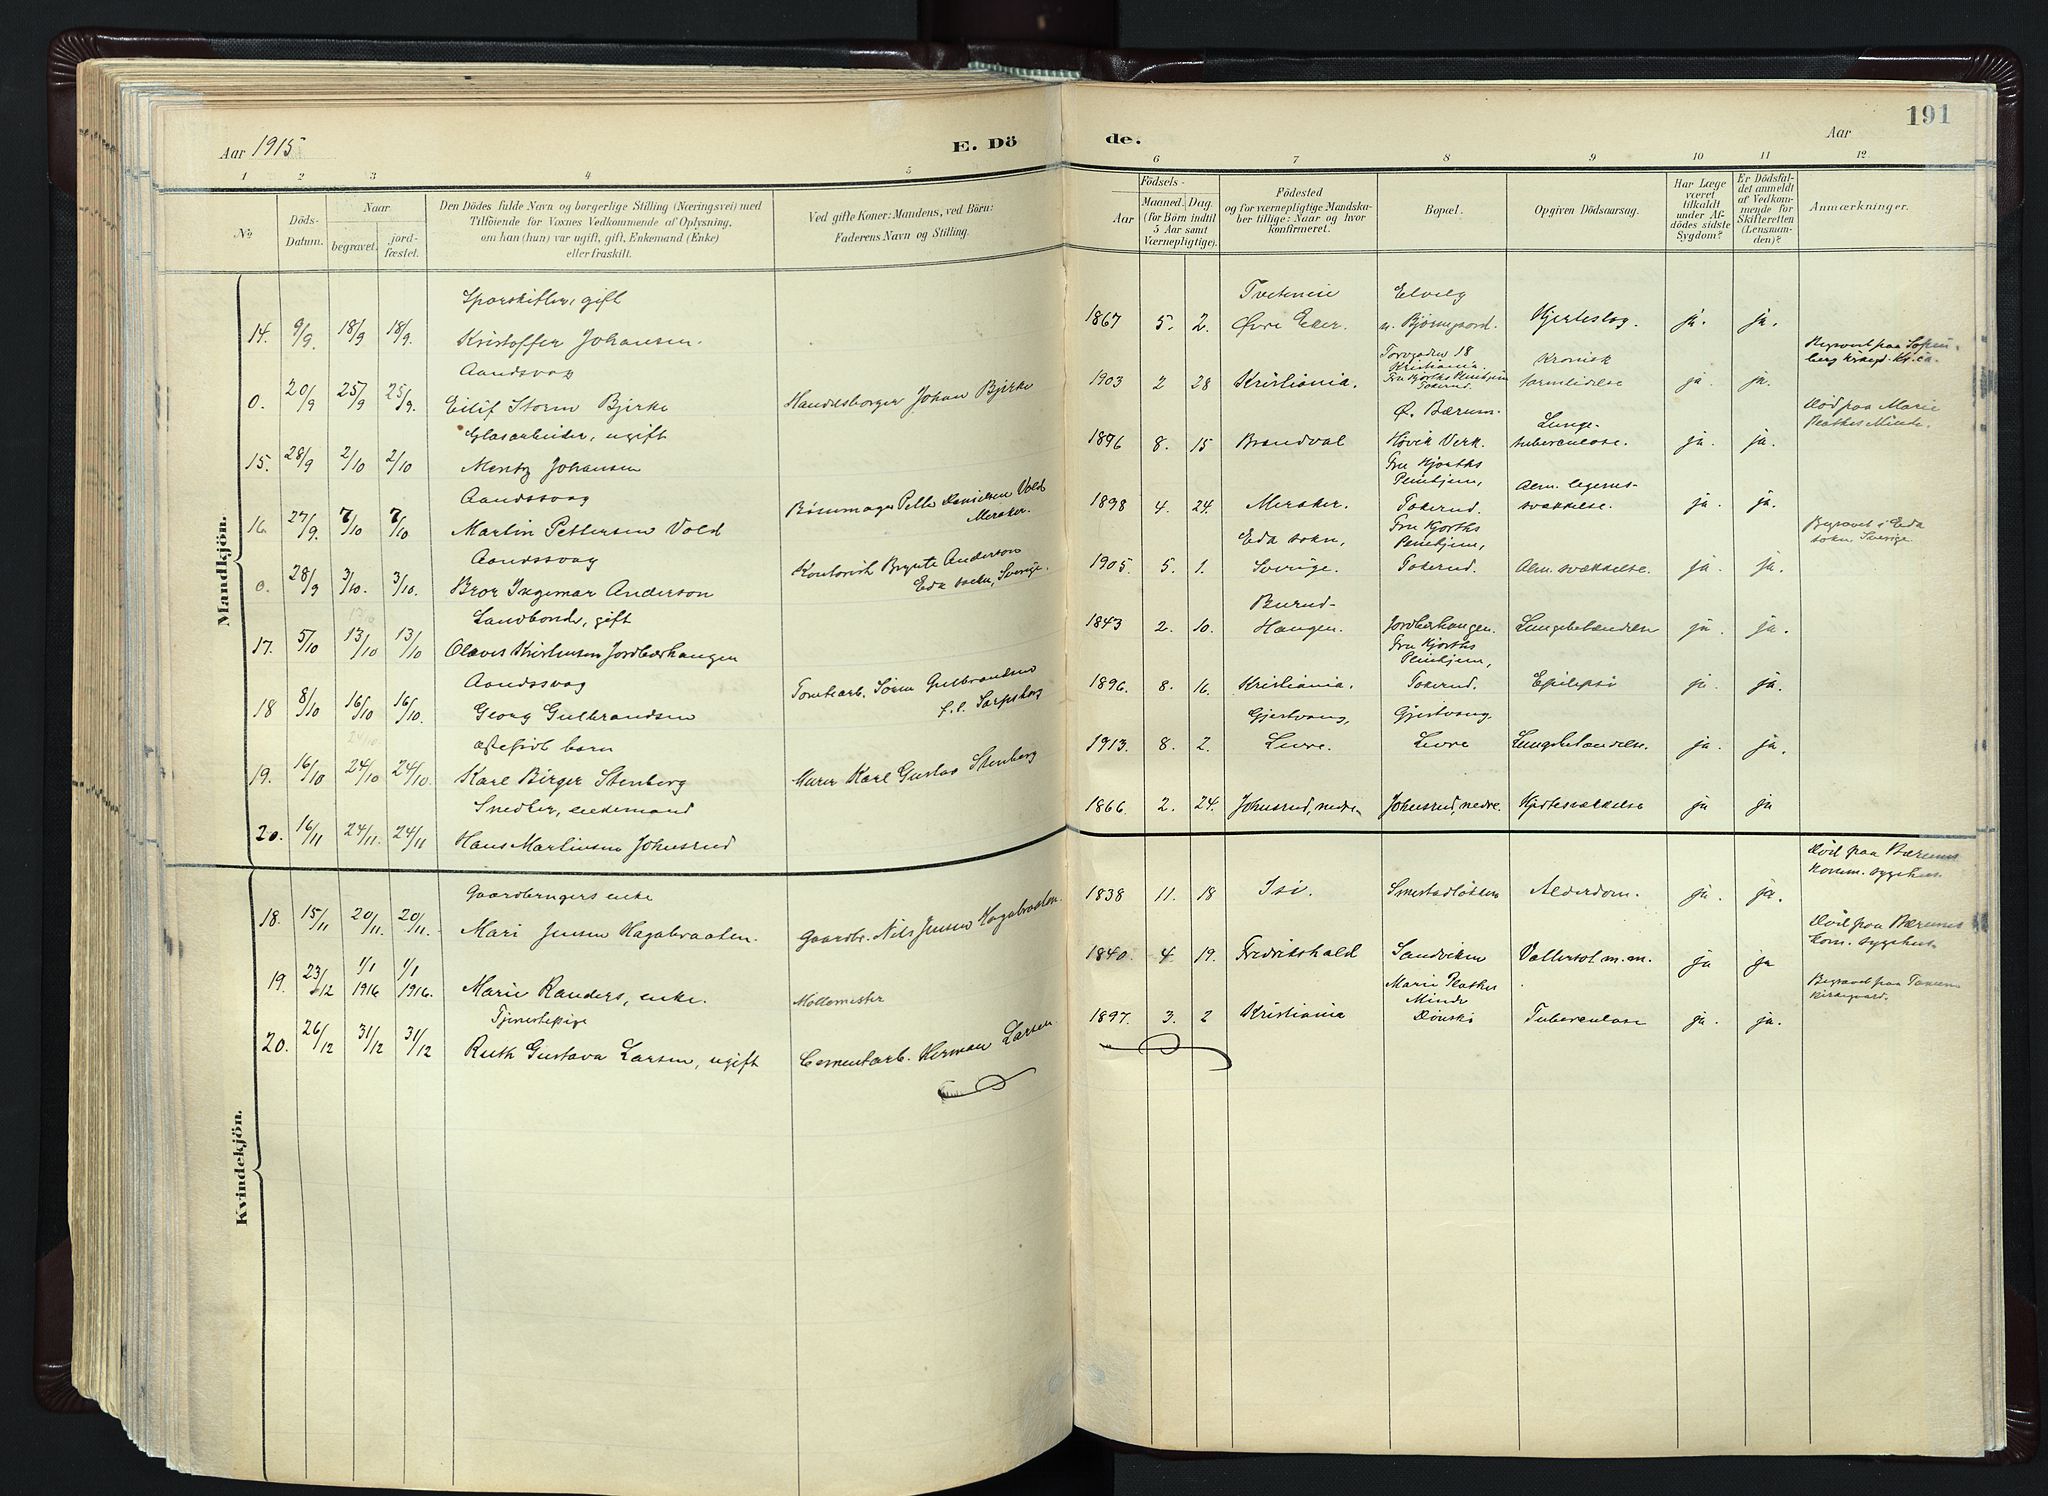 191
Aar 1915
E. Dö
de.
Aar
1 2 3 4 5 6 7 8 9 10 11 12
№
Döds-Datum.
Naar
begravet.
jord-fæstet.
Den Dödes fulde Navn og borgerlige Stilling (Næringsvei) med
Tilföiende for Voxnes Vedkommende af Oplysning,
om han (hun) var ugift, gift, Enkemand (Enke)
eller fraskilt.
Ved gifte Koner: Mandens, ved Börn:
Faderens Navn og Stilling.
Födsels-
Aar
Maaned. Dag.
(for Börn indtil
5 Aar samt
Værnepligtige).
Födested
og for værnepligtige Mandska-
ber tillige: Naar og hvor
konfirmeret.
Bopæl.
Opgiven Dödsaarsag.
Har Læge
været
tilkaldt
under Af-
dödes sidste
Sygdom?
Er Dödsfal-
det anmeldt
af Vedkom-
mende for
Skifteretten
(Lensman-
den)?
Anmærkninger.
Mandkjön.
Sporskifter, gift
14. 9/9. 18/9 18/9. Kristoffer Johansen. 1867 5. 2. Øvre Eker. n. Bjerregaard. Hjerteslag. ja. ja.
Aandssvag Torvgaden 18 Kristiania. Kronisk Begravet paa Sofien-
berg kirkeg. Kr.ia.
0. 20/9 25/9 25/9. Eilif Storm Bjerke Handelsborger Johan Bjerke 1903 2 28 Kristiania. Fru Kjorths Pleiehjem Tokerud. tarmlidelse ja. ja.
Glasarbeider, ugift Ø. Bærum. Lunge- Død paa Marie
Plathes Minde.
15. 28/9 2/10 2/10 Mentz Johansen 1896 8. 15 Brandval Høvik Verk. tuberculose. ja. ja.
Aandssvag Fru Kjorths Pleiehjem, Alm. legems-
16. 27/9. 7/10 7/10 Martin Pettersen Vold Bøssemager Pelle Danielsen Vold Meraker. 1898 4. 24. Meraker. Tokerud. svækkelse. ja. ja.
Aandssvag Eda sokn, Fru Kjorths Pleiehjem, Begravet i Eda
sokn, Sverige.
0. 28/9 3/10. 3/10. Bror Ingemar Anderson Kontorist Brynte Anderson Eda sokn, Sverige. 1905. 5. 1. Sverige. Tokerud. Alm. svækkelse. ja. ja.
Landbonde, gift Burud-
17. 5/10 13/10 13/10 Olaves Kristensen Jordbærhaugen 1843 2. 10. Haugen. Jordbærhaugen. Lungebetændelse ja. ja.
Aandssvag Fru Kjorths Pleiehjem,
18 8/10 16/10 16/10. Georg Gulbrandsen Tomtearb. Søren Gulbrandsen f. i. Sarpsborg 1896. 8. 16. Kristiania. Tokerud. Epilepsi ja. ja.
ægtefødt barn Gjestvang, Gjestvang,
19. 16/10 24/10 24/10. Karl Birger Stenberg Murer Karl Gustav Stenberg 1913. 8. 2. Levre. Levre Lungebetændelse. ja. ja.
Snedker, enkemand
20. 16/11 24/11. 24/11 Hans Martinsen Johnsrud 1866. 2. 24. Johnsrud, nedre. Johnsrud, nedre. Hjertesvækkelse ja ja
Kvindekjön.
Gaardbrugers enke Død paa Bærums
Komm. sygehus
18. 15/11 20/11. 20/11. Mari Jensen Hagabraaten. Gaardbr. Nils Jensen Hagabraaten. 1838 11. 18 Isi. Smestadløkken Alderdom. ja ja.
Død paa Bærums
Kom. sygehus
19. 23/12 1/1 1916 1/1 1916. Marie Randers, enke. Møllemester 1840. 4 19. Fredrikshald Sandviken Vattersot m.m. ja ja
Tjenestepige Marie Plathes Minde Begravet paa Tanum
kirkegaard.
20. 26/12 31/12 31/12 Ruth Gustava Larsen, ugift Cementarb. Herman Larsen. 1897. 3. 2 Kristiania Dønski Tuberculose ja. ja.